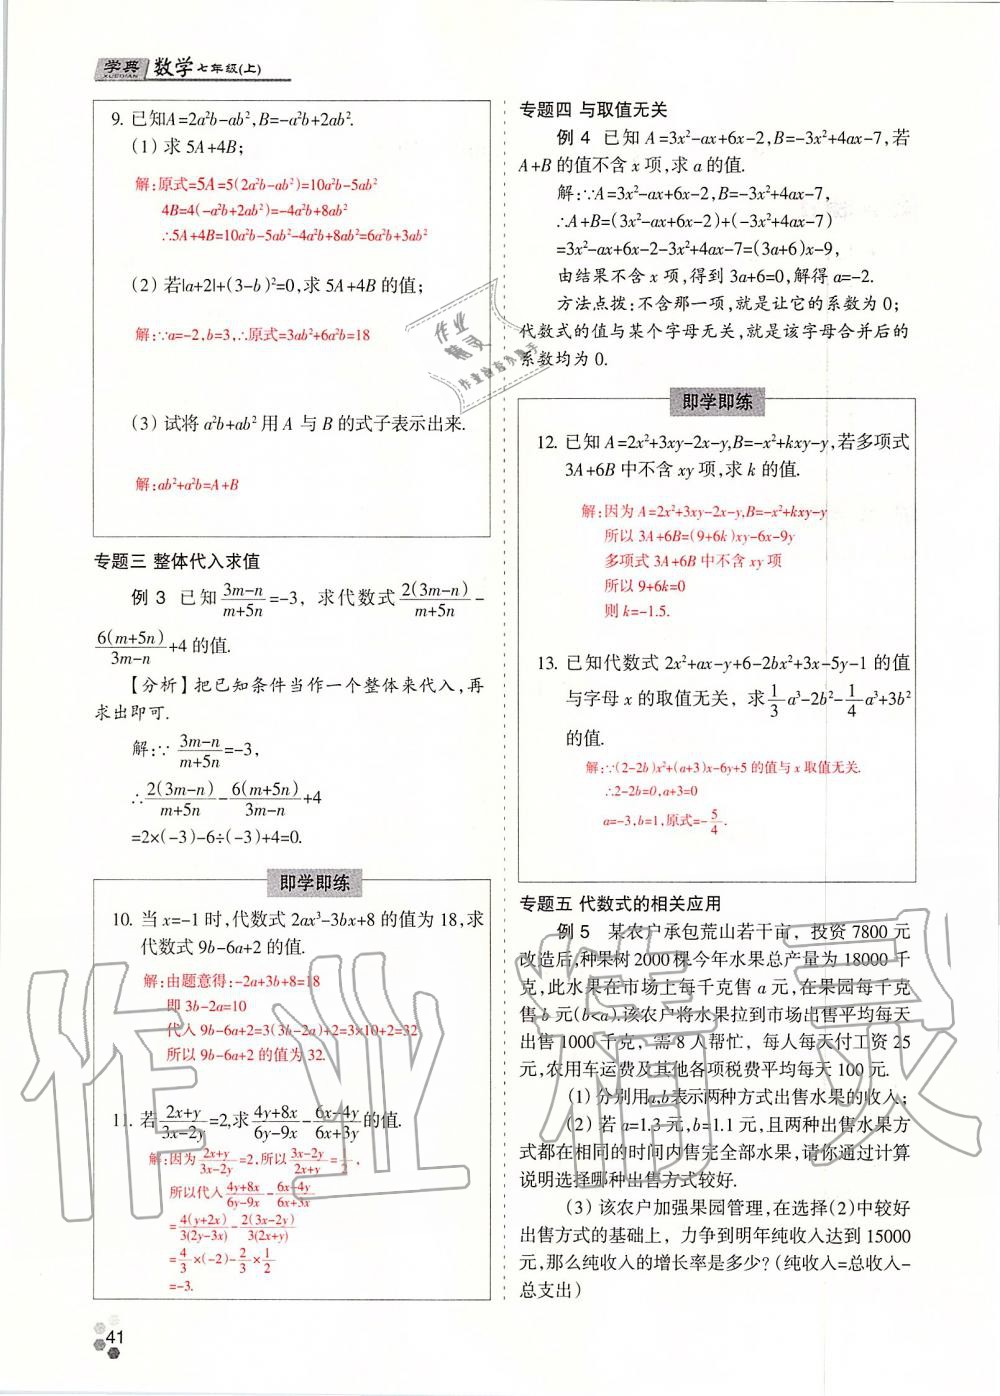 学典 数学七年级(上)
XUEDIAN
9. 已知A=2a²b-ab²,B=-a²b+2ab².
(1) 求 5A+4B;
解:原式=5A=5(2a²b-ab²)=10a²b-5ab²
4B=4(-a²b+2ab²)=-4a²b+8ab²
∴5A+4B=10a²b-5ab²-4a²b+8ab²=6a²b+3ab²
(2) 若|a+2|+(3-b)²=0,求 5A+4B 的值;
解:∵a=-2,b=3,∴原式=3ab²+6a²b=18
(3) 试将 a²b+ab² 用 A 与 B 的式子表示出来.
解:ab²+a²b=A+B
专题三 整体代入求值
例 3 已知 (3m-n)/(m+5n)=-3, 求代数式 2(3m-n)/(m+5n)-
6(m+5n)/(3m-n)+4 的值.
【分析】把已知条件当作一个整体来代入,再
求出即可.
解:∵ (3m-n)/(m+5n)=-3,
∴2(3m-n)/(m+5n)-6(m+5n)/(3m-n)+4
=2×(-3)-6÷(-3)+4=0.
即学即练
10. 当 x=-1 时,代数式 2ax³-3bx+8 的值为 18,求
代数式 9b-6a+2 的值.
解:由题意得:-2a+3b+8=18
即 3b-2a=10
代入 9b-6a+2=3(3b-2a)+2=3×10+2=32
所以 9b-6a+2 的值为 32.
11. 若 (2x+y)/(3x-2y)=2,求 (4y+8x)/(6y-9x)-(6x-4y)/(6x+3y) 的值.
解:因为 (2x+y)/(3x-2y)=2,所以 (3x-2y)/(2x+y)=1/2,
所以代入 (4y+8x)/(6y-9x)-(6x-4y)/(6x+3x)
=4(y+2x)/3(2y-3x)-2(3x-2y)/3(2x+y)
=4/3×(-2)-2/3×1/2
=-3.
41
专题四 与取值无关
例 4 已知 A=3x²-ax+6x-2,B=-3x²+4ax-7,若
A+B 的值不含 x 项,求 a 的值.
解:∵A=3x²-ax+6x-2,B=-3x²+4ax-7,
∴A+B=(3x²-ax+6x-2)+(-3x²+4ax-7)
=3x²-ax+6x-2-3x²+4ax-7=(3a+6)x-9,
由结果不含 x 项,得到 3a+6=0,解得 a=-2.
方法点拨:不含那一项,就是让它的系数为 0;
代数式的值与某个字母无关,就是该字母合并后的
系数均为 0.
即学即练
12. 已知 A=2x²+3xy-2x-y,B=-x²+kxy-y,若多项式
3A+6B 中不含 xy 项,求 k 的值.
解:因为 A=2x²+3xy-2x-y,B=-x²+kxy-y
所以 3A+6B=(9+6k)xy-6x-9y
多项式 3A+6B 中不含 xy 项
所以 9+6k=0
则 k=-1.5.
13. 已知代数式 2x²+ax-y+6-2bx²+3x-5y-1 的值
与字母 x 的取值无关, 求 1/3 a³-2b²-1/4 a³+3b²
的值.
解:∵(2-2b)x²+(a+3)x-6y+5 的值与 x 取值无关.
∴2-2b=0,a+3=0
a=-3,b=1,原式=-5/4.
专题五 代数式的相关应用
例 5 某农户承包荒山若干亩, 投资 7800 元
改造后,种果树 2000 棵今年水果总产量为 18000 千
克,此水果在市场上每千克售 a 元,在果园每千克
售 b 元(b<a).该农户将水果拉到市场出售平均每天
出售 1000 千克, 需 8 人帮忙, 每人每天付工资 25
元,农用车运费及其他各项税费平均每天 100 元.
(1) 分别用a,b表示两种方式出售水果的收入;
(2) 若 a=1.3 元,b=1.1 元,且两种出售水果方
式都在相同的时间内售完全部水果,请你通过计算
说明选择哪种出售方式较好.
(3) 该农户加强果园管理,在选择(2)中较好
出售方式的基础上, 力争到明年纯收入达到 15000
元,那么纯收入的增长率是多少?(纯收入=总收入-
总支出)
作业精灵
作业
精灵